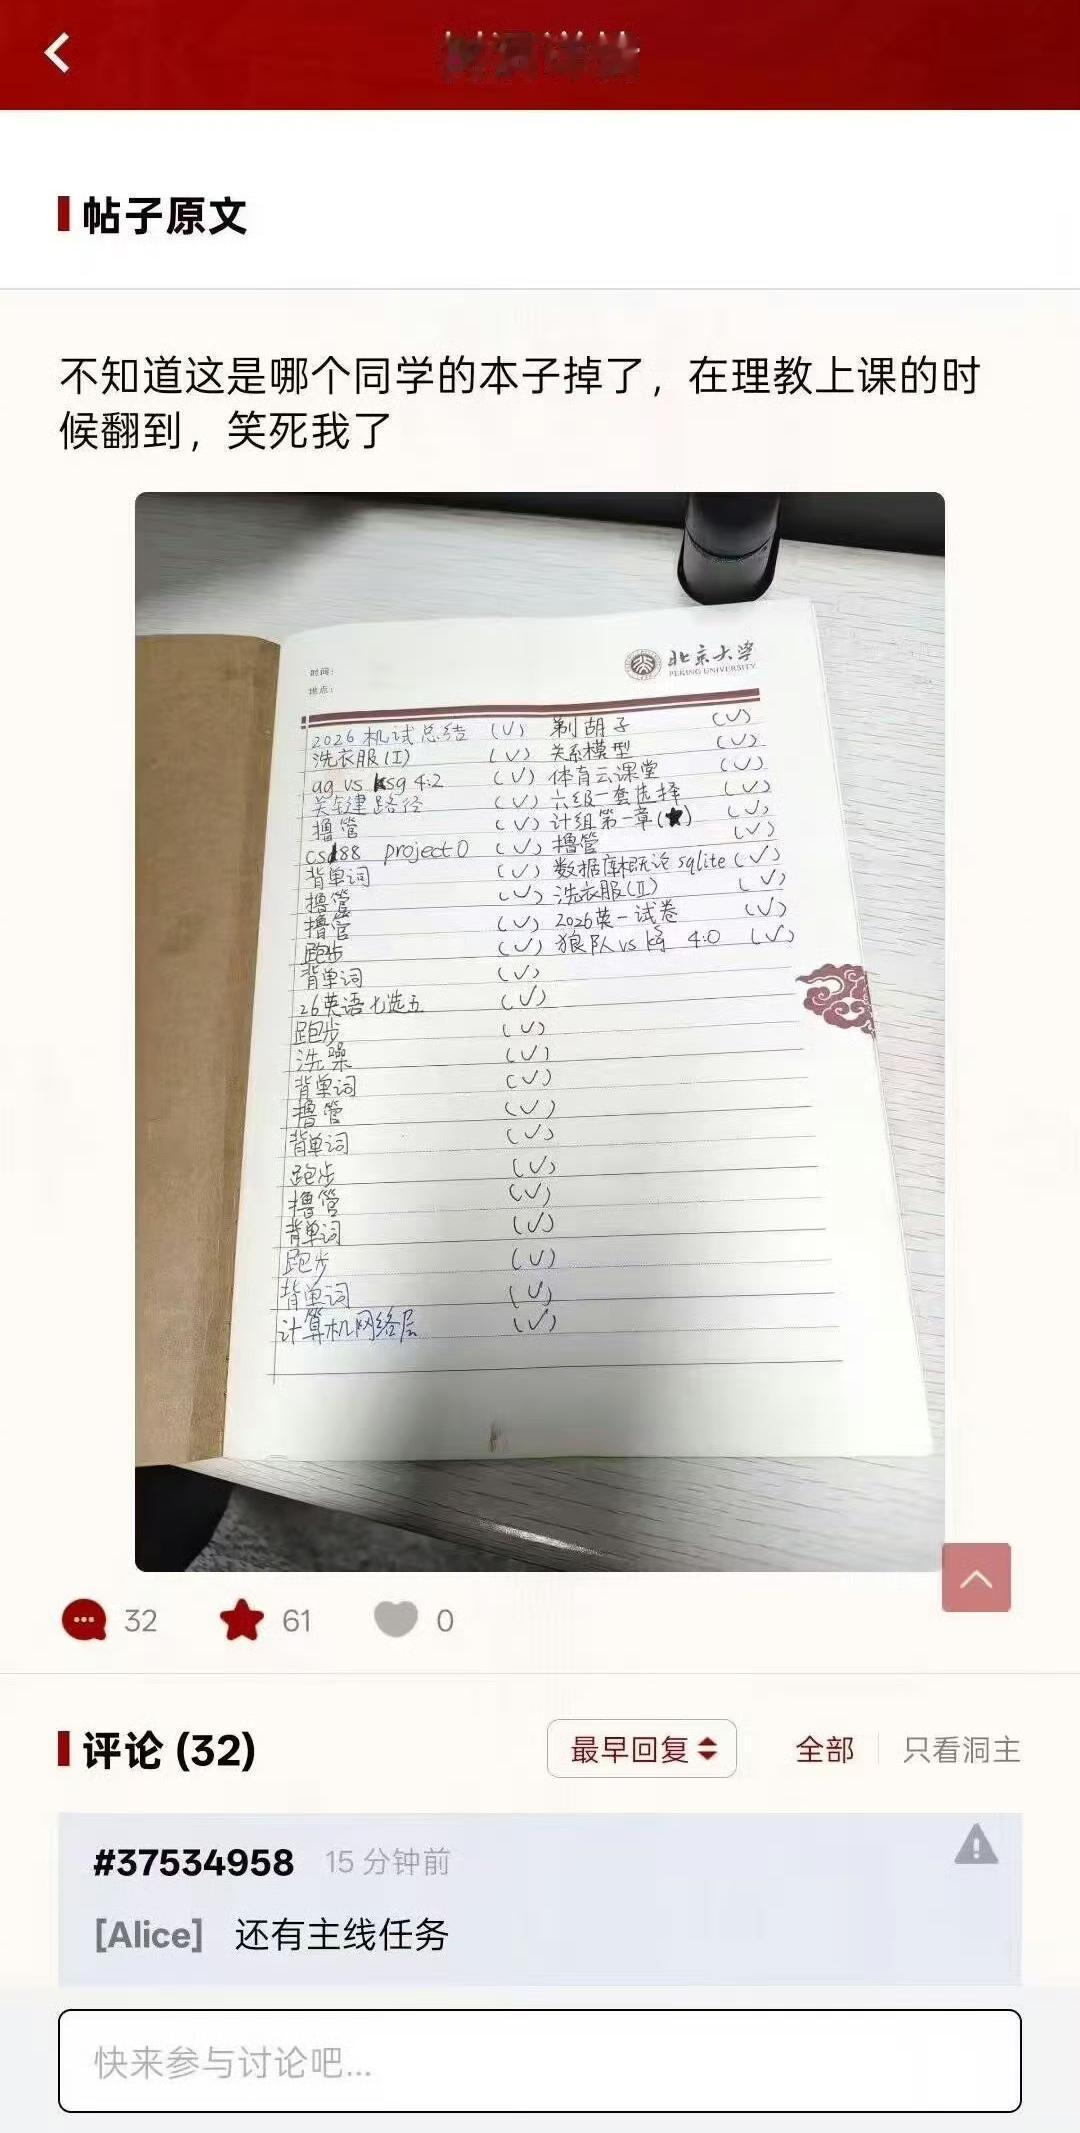 帖子原文
不知道这是哪个同学的本子掉了，在理教上课的时
候翻到，笑死我了
时间：
地点：
北京大学
PEKING UNIVERSITY
2026机试总结 (√) 剃胡子 (√)
洗衣服(I) (√) 关系模型 (√)
ag vs ksg 4:2 (√) 体育云课堂 (√)
关键路径 (√) 六级一套选择 (√)
撸管 (√) 计组第一章(★) (√)
cs188 project0 (√) 撸管 (√)
背单词 (√) 数据库概论 sqlite (√)
撸管 (√) 洗衣服(II) (√)
撸管 (√) 2026英一试卷 (√)
跑步 (√) 狼队 vs 4:0 (√)
背单词 (√)
26英语七选五 (√)
跑步 (√)
洗澡 (√)
背单词 (√)
撸管 (√)
背单词 (√)
跑步 (√)
撸管 (√)
背单词 (√)
跑步 (√)
背单词 (√)
计算机网络层 (√)
32 61 0
评论 (32) 最早回复 全部 只看洞主
#37534958 15 分钟前
[Alice] 还有主线任务
快来参与讨论吧...